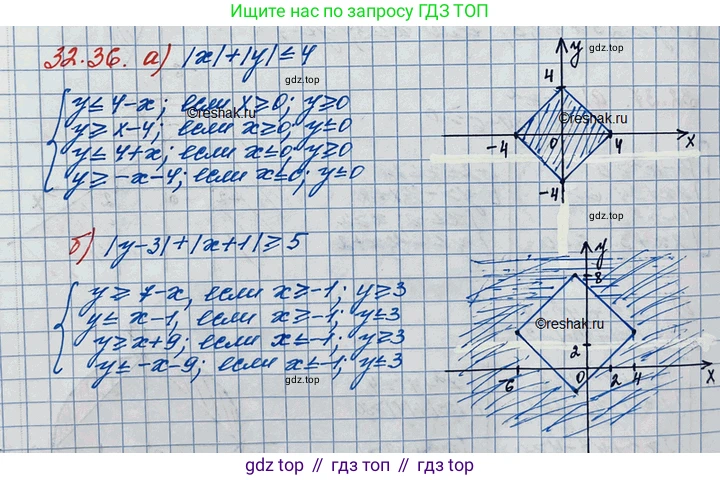 Ищите нас по запросу ГДЗ ТОП
32.36. а) |x|+|y|≤4
y≤4-x; если x≥0; y≥0
y≥x-4; если x≥0; y≤0
y≤4+x; если x≤0; y≥0
y≥-x-4; если x≤0; y≤0
©reshak.ru
gdz top
y
gdz top
4
©reshak.ru
-4
0
4
x
-4
gdz top
б) |y-3|+|x+1|≥5
y≥7-x, если x≥-1; y≥3
y≤x-1, если x≥-1; y≤3
y≥x+9; если x≤-1; y≥3
y≤-x-9; если x≤-1; y≤3
©reshak.ru
gdz top
y
8
©reshak.ru
2
-6
0
2
4
x
gdz top
gdz top // гдз топ // gdz top